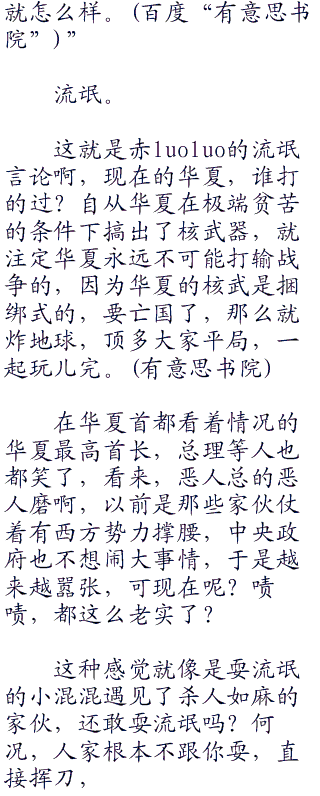 就怎么样。(百度“有意思书
院”)”
流氓。
这就是赤luoluo的流氓
言论啊，现在的华夏，谁打
的过？自从华夏在极端贫苦
的条件下搞出了核武器，就
注定华夏永远不可能打输战
争的，因为华夏的核武是捆
绑式的，要亡国了，那么就
炸地球，顶多大家平局，一
起玩儿完。(有意思书院)
在华夏首都看着情况的
华夏最高首长，总理等人也
都笑了，看来，恶人总的恶
人磨啊，以前是那些家伙仗
着有西方势力撑腰，中央政
府也不想闹大事情，于是越
来越嚣张，可现在呢？啧
啧，都这么老实了？
这种感觉就像是耍流氓
的小混混遇见了杀人如麻的
家伙，还敢耍流氓吗？何
况，人家根本不跟你耍，直
接挥刀，